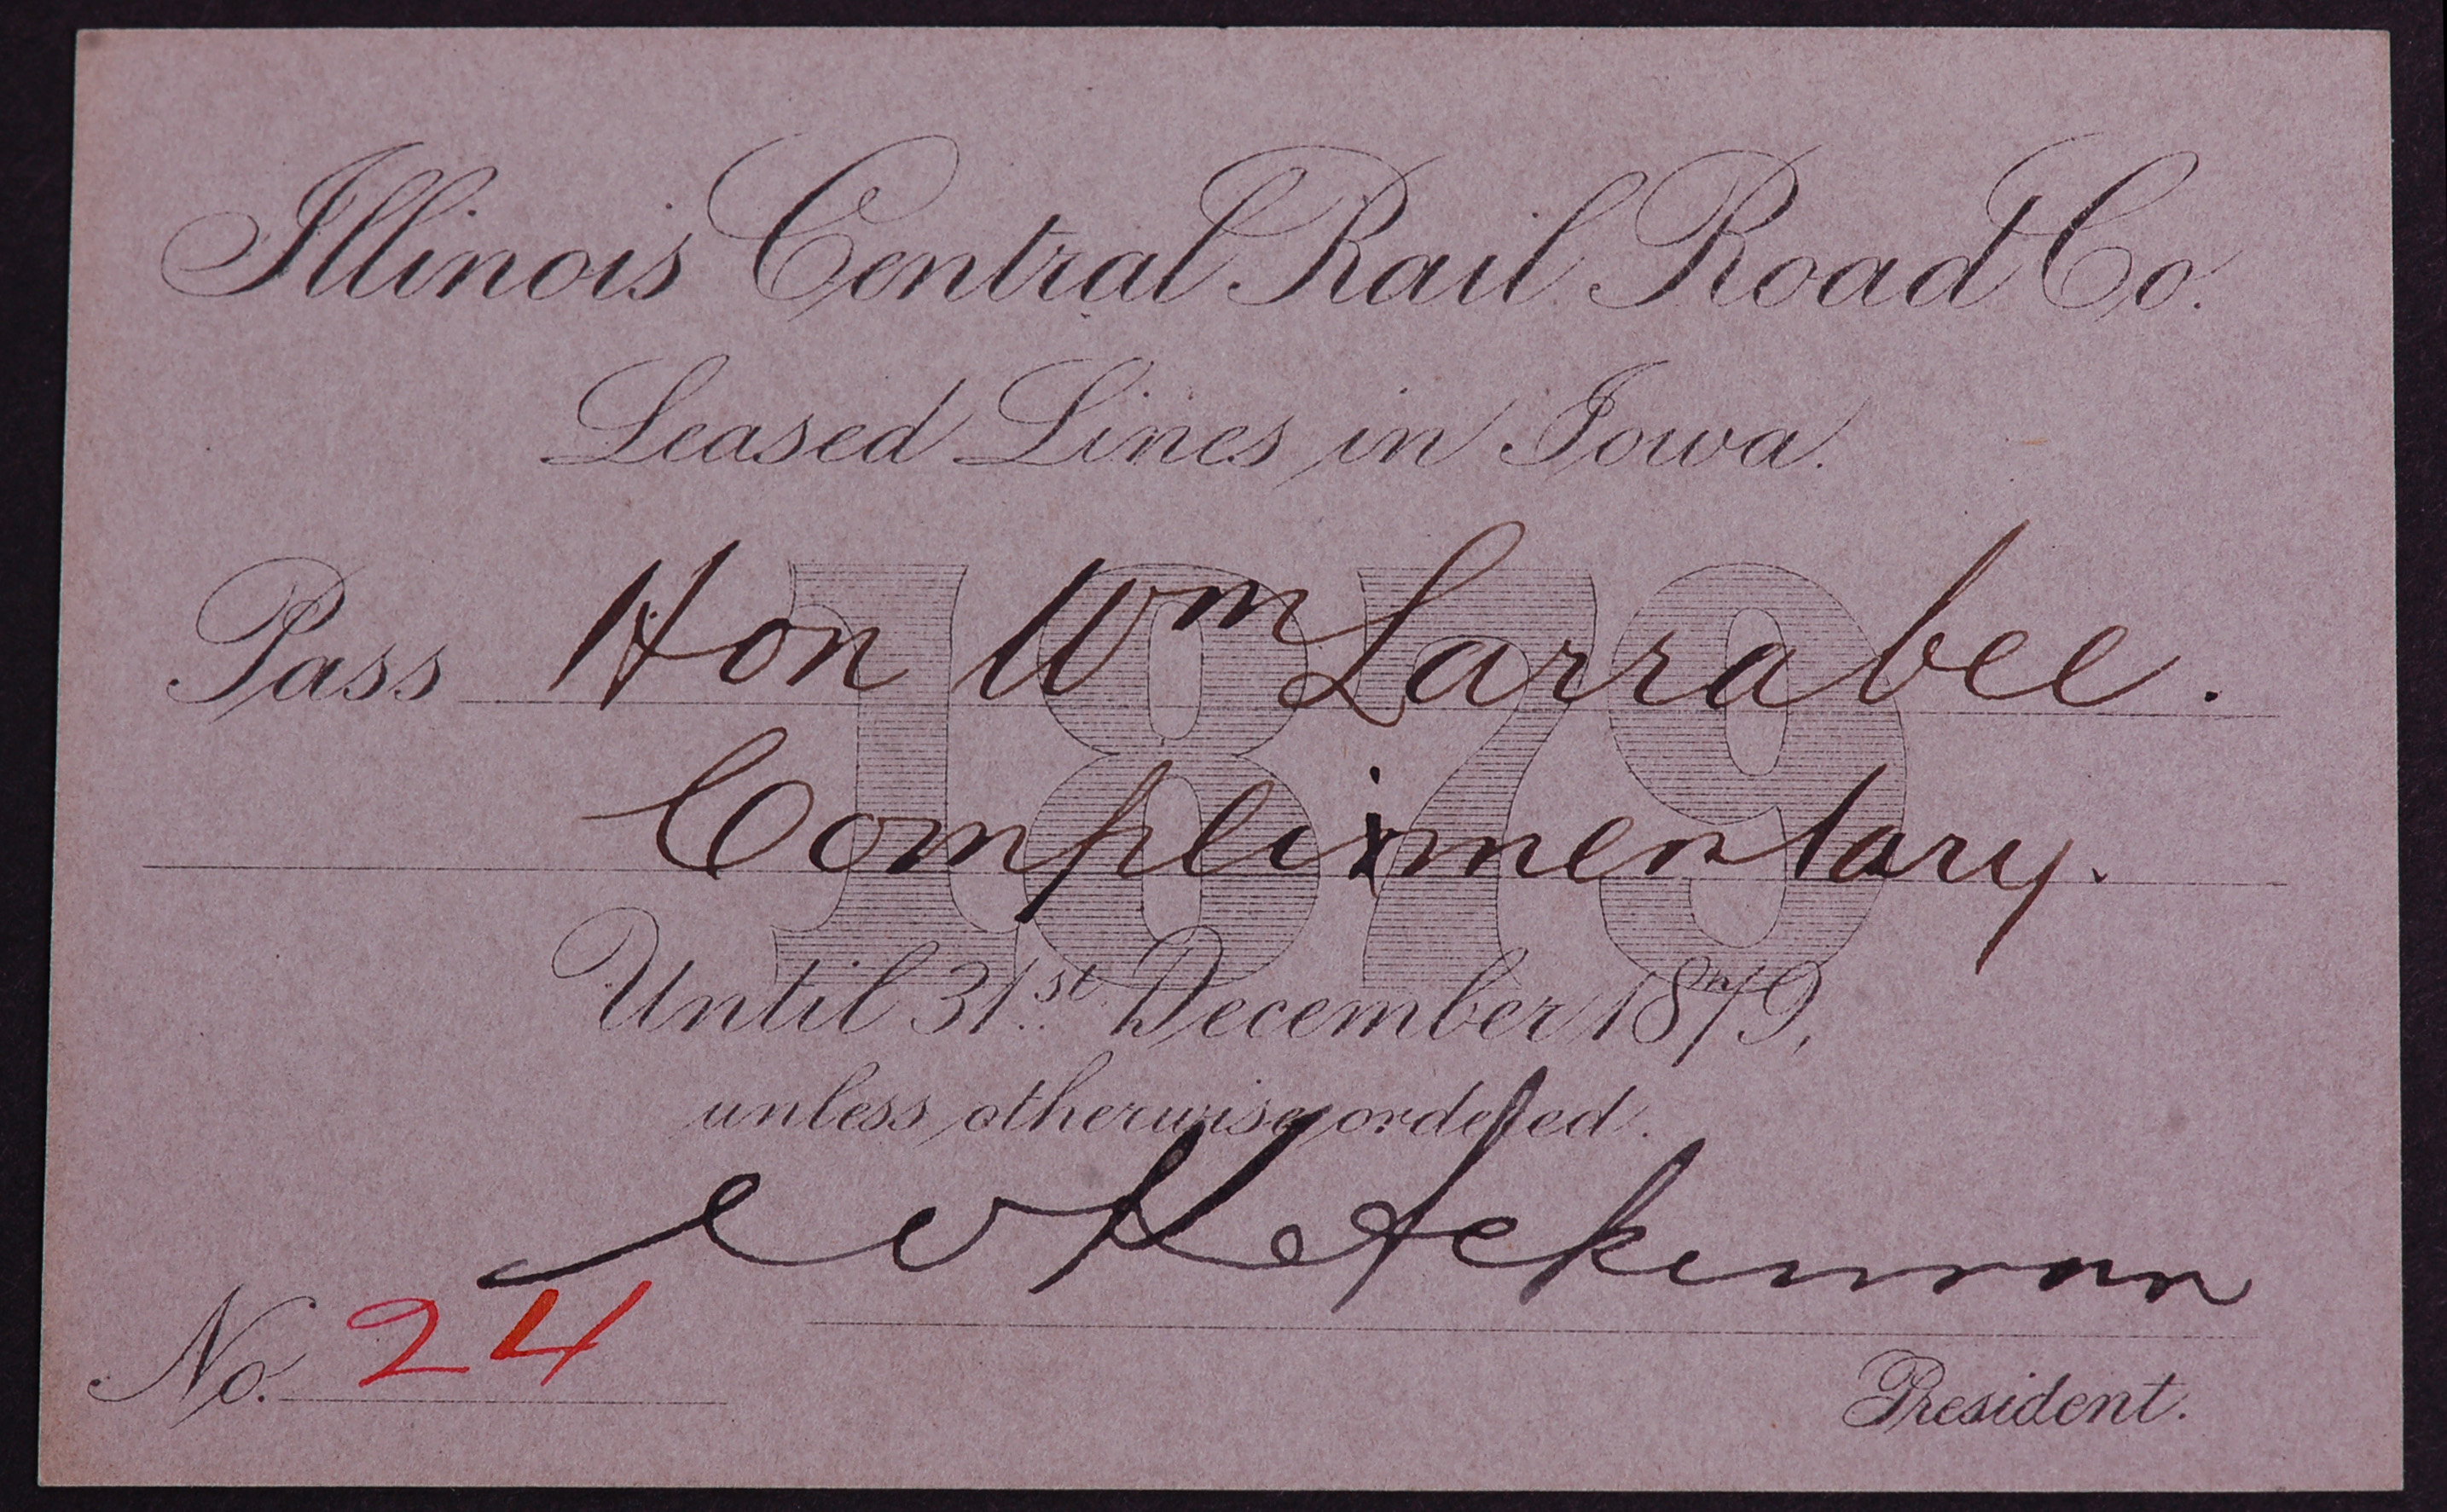 Illinois Central Rail Road Co.
Leased Lines in Iowa.
1879
Pass Hon Wm Larrabee.
Complimentary.
Until 31st December 1879,
unless otherwise ordered.
W K Ackerman
No. 24
President.